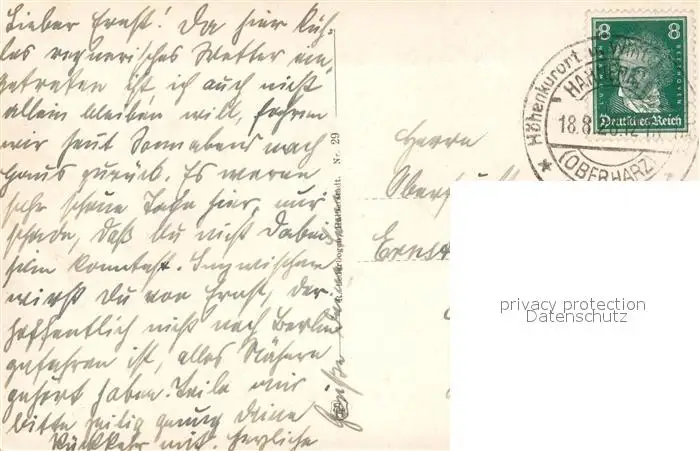 Lieber Ernst! Da hier küh-
les regnerisches Wetter ein-
getreten ist, ich auch nicht
allein bleiben will, fahren
wir heut Sonnabend nach
Haus zurück. Es waren
sehr schöne Tage hier, nur
schade, daß Du nicht dabei
sein konntest. Inzwischen
wirst Du von Ernst, der
hoffentlich nicht nach Berlin
gefahren ist, alles Nähere
gehört haben. Teile mir
bitte zeitig genug Deine
Rückkehr mit. Herzliche
Grüße
Nr. 29
Herrn
Ober
Ernst
8 8
BEETHOVEN
Deutsches Reich
Höhenkurort
18.8.
(OBERHARZ)
privacy protection
Datenschutz